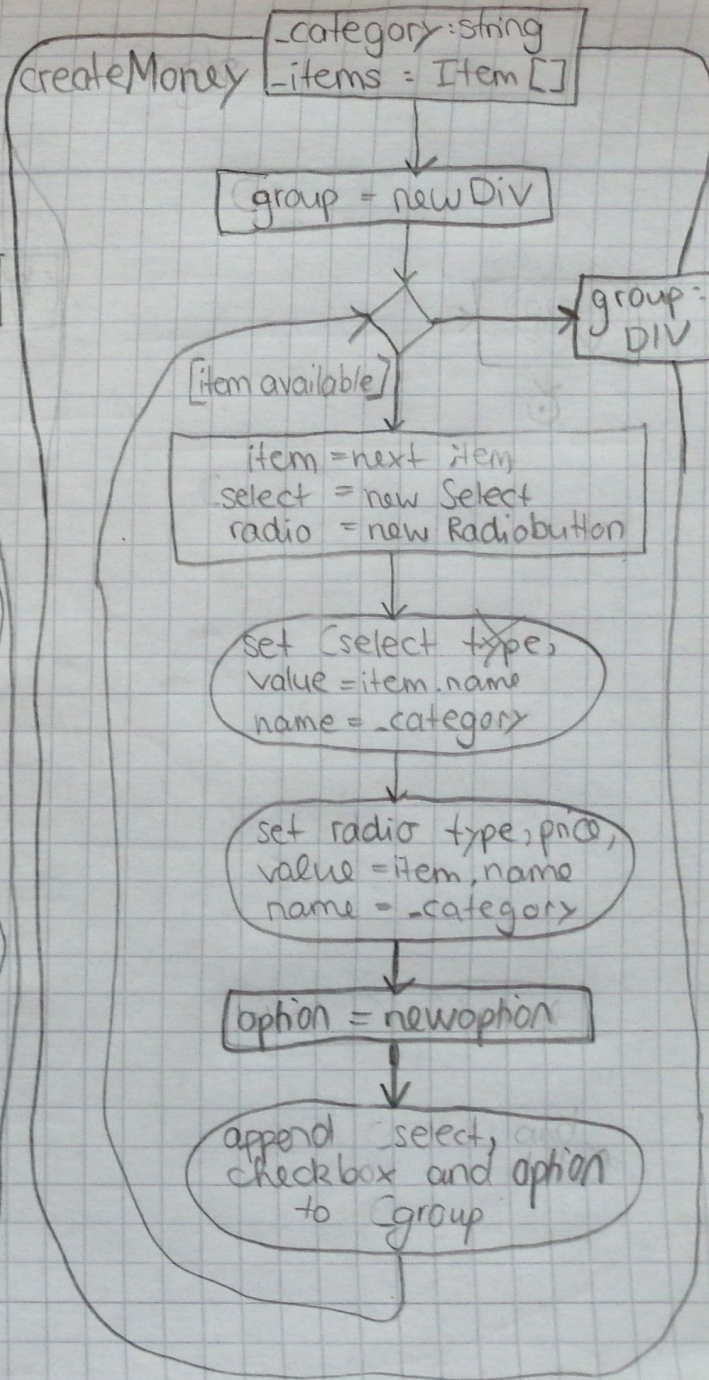 _category: string
createMoney
_items : Item []
group = new Div
group:
DIV
[item available]
item = next item
select = new Select
radio = new Radiobutton
set select type,
value = item.name
name = _category
set radio type, price,
value = item.name
name = _category
option = newoption
append select,
checkbox and option
to group